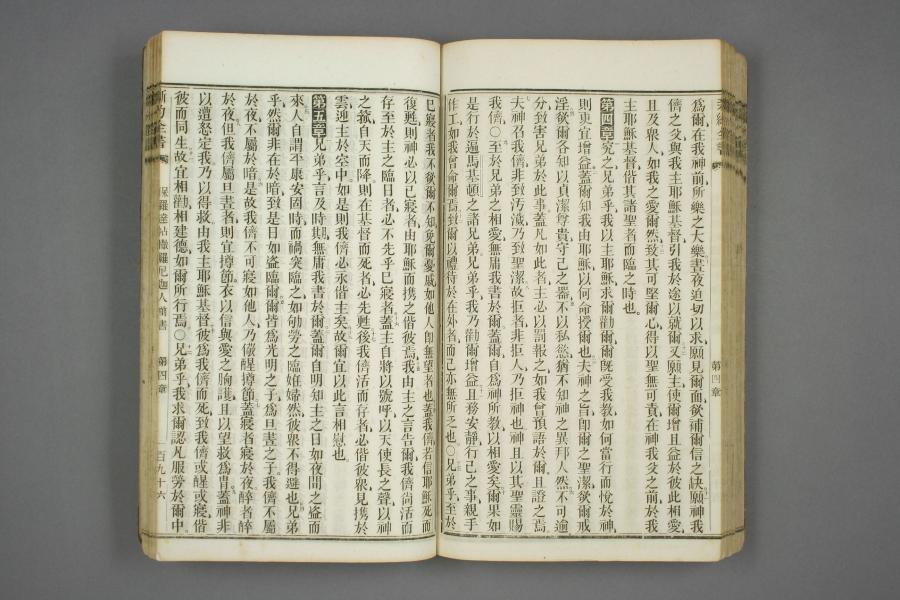 第四章
爲爾在我神前所樂之大樂晝夜迫切以求願見爾面欲補爾信之缺願神我
儕之父與我主耶穌基督引我於途以就爾又願主使爾增且益於彼此相愛
且及衆人如我之愛爾然致其可堅爾心得以聖無可責在神我父之前於我
主耶穌基督偕其諸聖者而臨之時也。
第四章究之兄弟乎我以主耶穌求爾勸爾爾既受我教如何當行而悅於神
則更宜增益蓋爾知我由耶穌以何命授爾也夫神之旨卽爾之聖潔欲爾戒
淫欲爾各知以貞潔尊貴守己之器不以私慾猶不知神之異邦人然不可逾
分致害兄弟於此事蓋凡如此者主必以罰報之如我曾預語於爾且證之焉
夫神召我儕非致汚濊乃致聖潔故拒者非拒人乃拒神也神且以其聖靈賜
我儕○至於兄弟之相愛無庸我書於爾蓋爾自爲神所教以相愛矣爾果如
是行於遍馬基頓之諸兄弟兄弟乎我乃勸爾增益且務安靜行己之事親手
作工如我曾命爾焉致爾以禮待於在外者而己亦無所乏也○兄弟乎至於
已寢者我不欲爾不知免爾憂戚如他人卽無望者也蓋我儕若信耶穌死而
復甦則神必以已寢者由耶穌而攜之偕彼焉我由主之言告爾我儕尙活而
存至於主之臨日者必不先乎已寢者蓋主自將以號呼以天使長之聲以神
之號自天而降則在基督而死者必先甦後我儕活而存者必偕彼衆見攜於
雲迎主於空中如是則我儕必永偕主矣故爾宜以此言相慰也
第五章兄弟乎言及時期無庸我書於爾蓋爾自明知主之日如夜間之盜而
來人自謂平康安固時而禍突臨之如劬勞之臨姙婦然彼衆不得避也兄弟
乎然爾非在於暗致是日如盜臨爾爾皆爲光明之子爲旦晝之子我儕不屬
於夜不屬於暗是故我儕不可寢如他人乃儆醒撙節蓋寢者寢於夜醉者醉
於夜但我儕屬旦晝者則宜撙節衣以信與愛之胸護且以望救爲胄蓋神非
以遭怒定我乃以得救由我主耶穌基督彼爲我儕而死致我儕或醒或寢偕
彼而同生故宜相勸相建德如爾所行焉○兄弟乎我求爾認凡服勞於爾中
新約全書
第四章
一百九十六